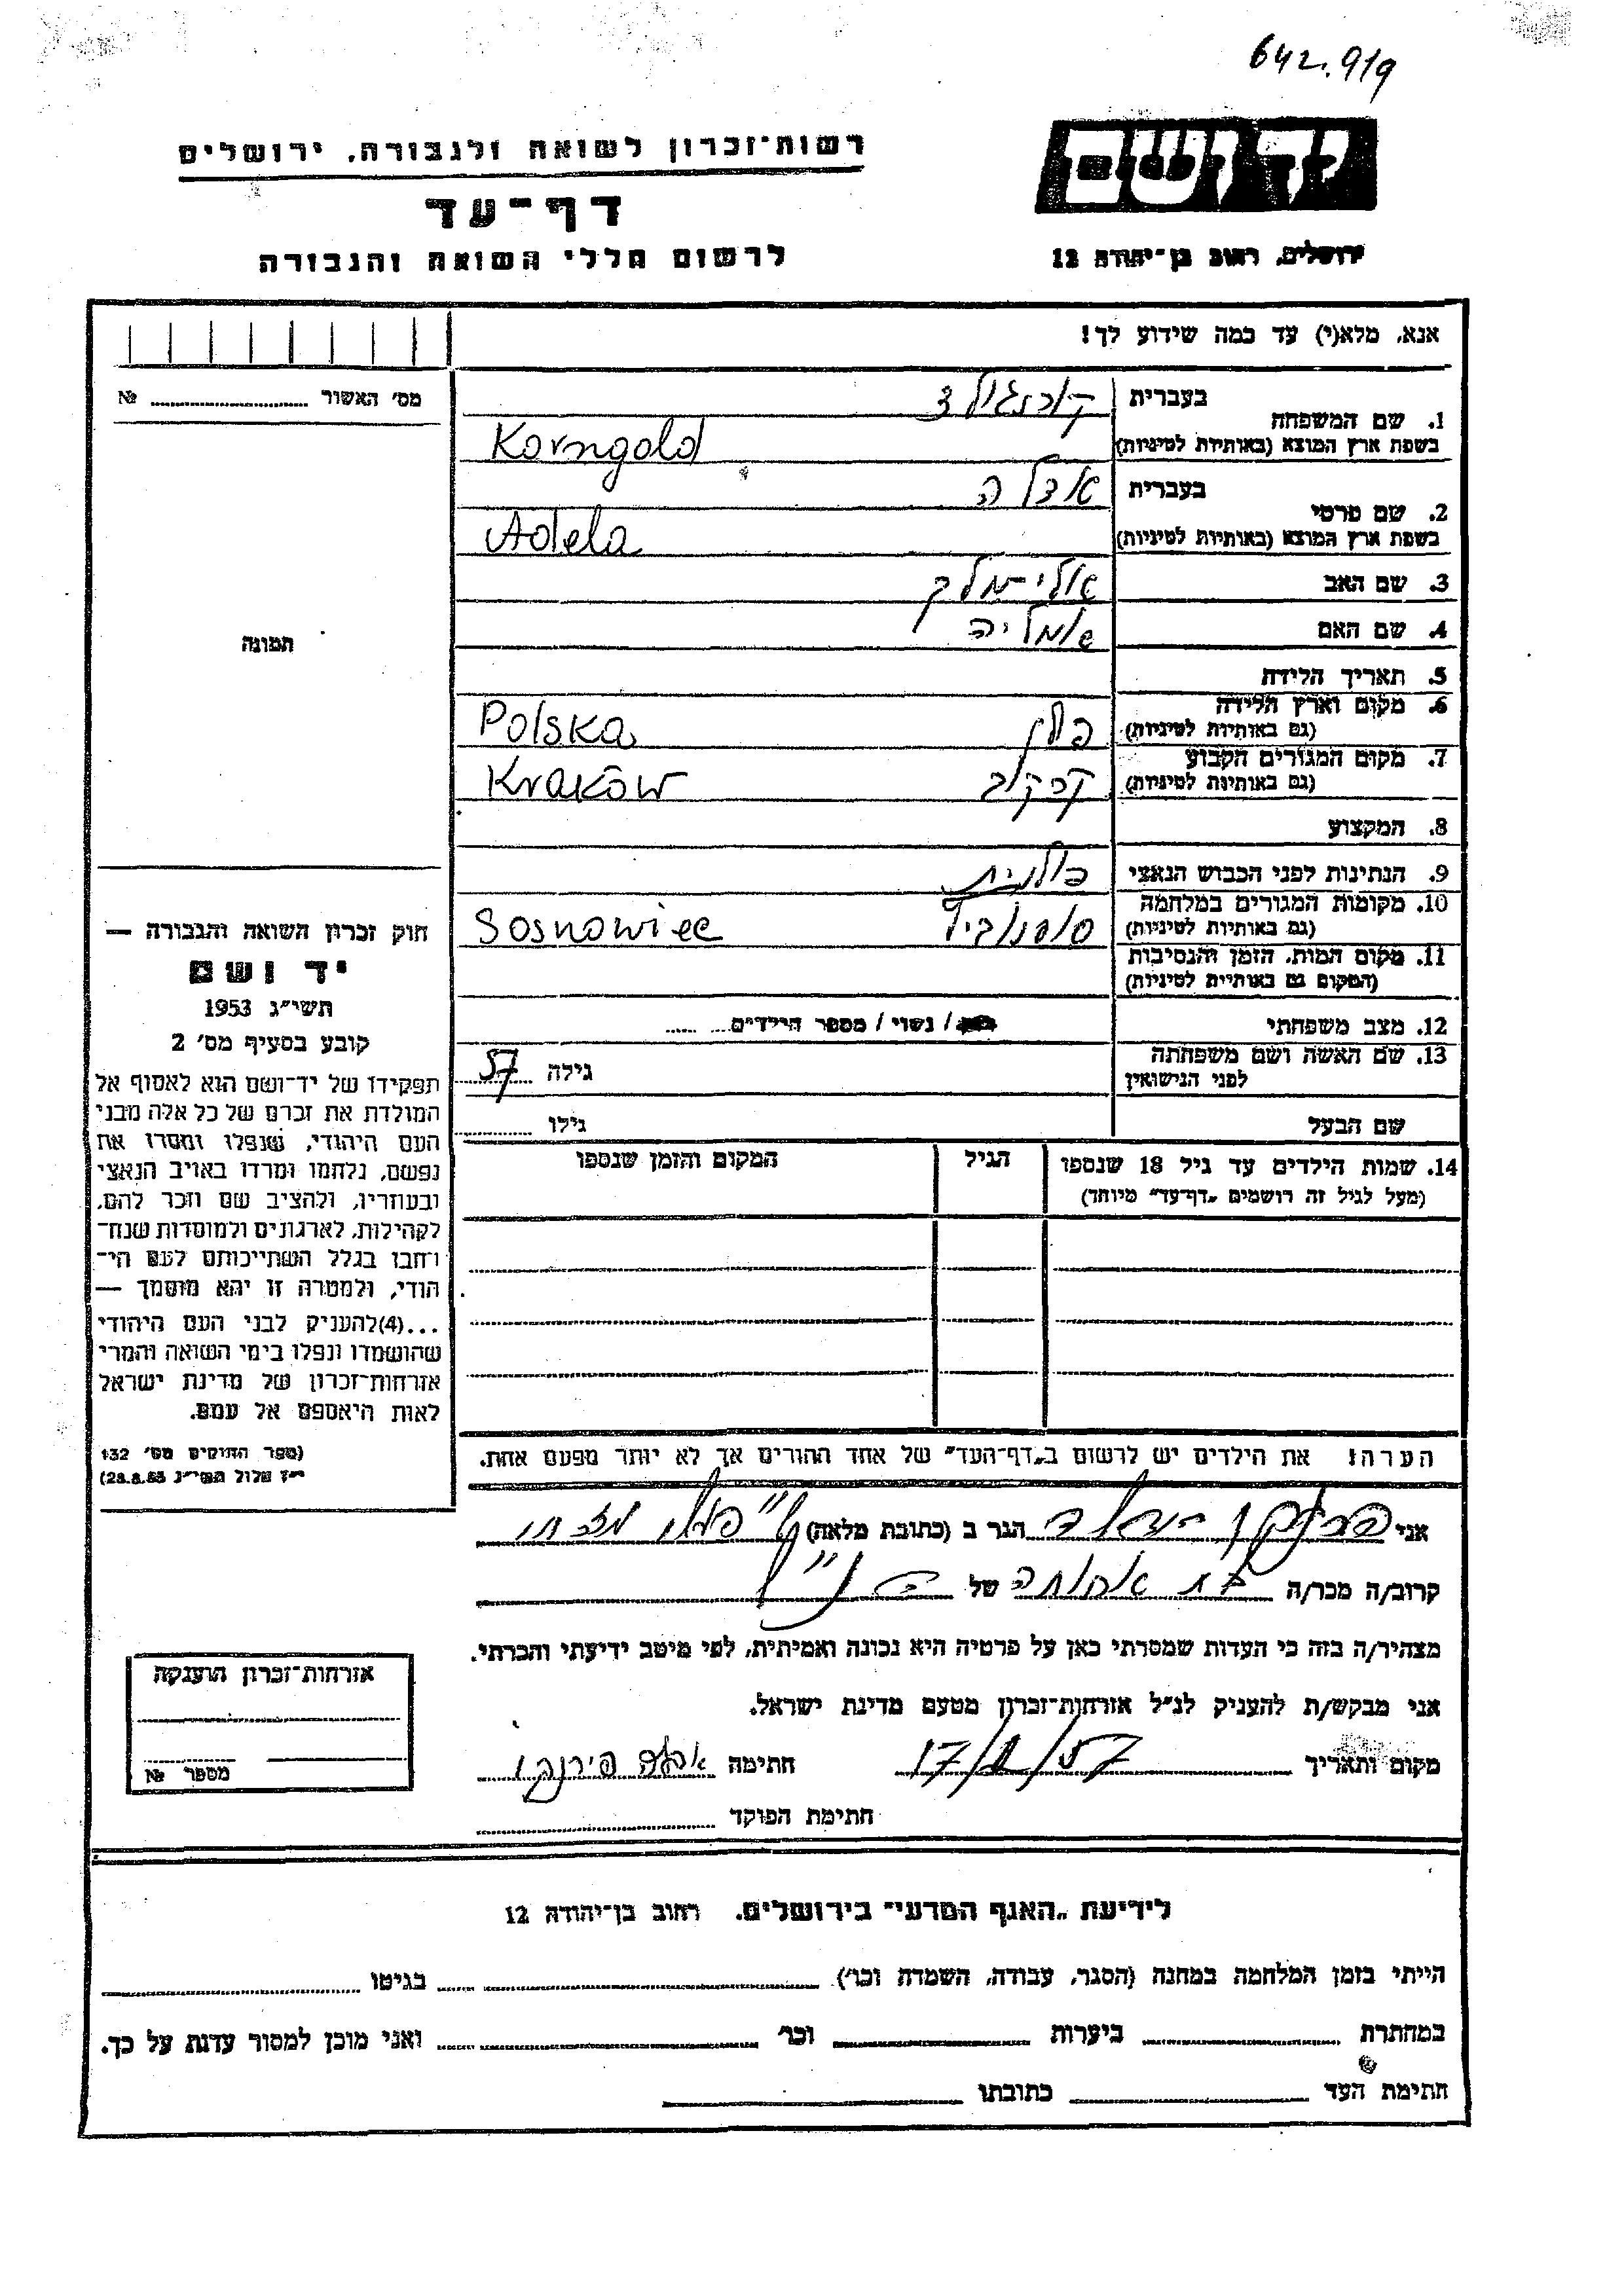 642.9/9
יד ושם
ירושלים, רחוב בן־יהודה 12
רשות־זכרון לשואה ולגבורה, ירושלים
דף־עד
לרשום חללי השואה והגבורה
אנא, מלא(י) עד כמה שידוע לך!
מס' האשור № 
1. שם המשפחה
בעברית קורנגולד
בשפת ארץ המוצא (באותיות לטיניות) Korngold
2. שם פרטי
בעברית אדלה
בשפת ארץ המוצא (באותיות לטיניות) Adela
3. שם האב אלי-מלך
4. שם האם אמליה
תמונה
5. תאריך הלידה
6. מקום וארץ הלידה
(גם באותיות לטיניות) פולין Polska
7. מקום המגורים הקבוע
(גם באותיות לטיניות) קרקוב Kraków
8. המקצוע
9. הנתינות לפני הכבוש הנאצי פולנית
10. מקומות המגורים במלחמה
(גם באותיות לטיניות) סוסנוביץ Sosnowiec
11. מקום המות, הזמן והנסיבות
(המקום גם באותיות לטיניות)
12. מצב משפחתי / נשוי / מספר הילדים
13. שם האשה ושם משפחתה
לפני הנישואין גילה 57
שם הבעל גילו
14. שמות הילדים עד גיל 18 שנספו
(מעל לגיל זה רושמים „דף־עד" מיוחד)
הגיל
המקום והזמן שנספו
הערה: את הילדים יש לרשום ב„דף־העד" של אחד ההורים אך לא יותר מפעם אחת.
חוק זכרון השואה והגבורה —
יד ושם
תשי״ג 1953
קובע בסעיף מס' 2
תפקידו של יד־ושם הוא לאסוף אל
המולדת את זכרם של כל אלה מבני
העם היהודי, שנפלו ומסרו את
נפשם, נלחמו ומרדו באויב הנאצי
ובעוזריו, ולהציב שם וזכר להם,
לקהילות, לארגונים ולמוסדות שנח־
רחבו בגלל השתייכותם לעם הי־
הודי, ולמטרה זו יהא מוסמך —
...(4)להעניק לבני העם היהודי
שהושמדו ונפלו בימי השואה והמרי
אזרחות־זכרון של מדינת ישראל
לאות היאספם אל עמם.
(ספר החוקים מס' 132
י״ז אלול תשי״ג 28.8.53)
אני הגר ב (כתובת מלאה)
קרוב/ה מכר/ה בת אחותה של
מצהיר/ה בזה כי העדות שמסרתי כאן על פרטיה היא נכונה ואמיתית, לפי מיטב ידיעתי והכרתי.
אני מבקש/ת להעניק לנ״ל אזרחות־זכרון מטעם מדינת ישראל.
מקום ותאריך חתימה
חתימת הפוקד
אזרחות־זכרון הוענקה
מספר №
לידיעת „האגף המדעי" בירושלים, רחוב בן־יהודה 12
הייתי בזמן המלחמה במחנה (הסגר, עבודה, השמדה וכו') בגיטו
במחתרת ביערות וכו' ואני מוכן למסור עדות על כך.
חתימת העד כתובתו